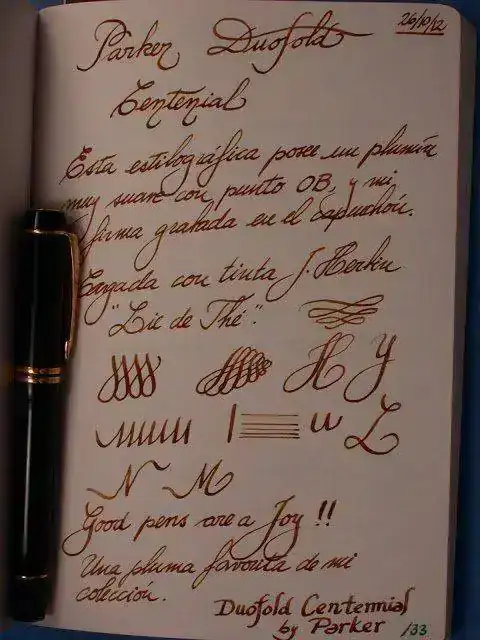 26/10/12
Parker Duofold
Centenial
Esta estilográfica posee un plumín
muy suave con punto OB, y mi
firma grabada en el capuchón.
Cargada con tinta J. Herbin
"Lie de Thé".
H Y
uuuu u L
N M
Good pens are a Joy !!
Una pluma favorita de mi
colección.
Duofold Centennial
by Parker /33